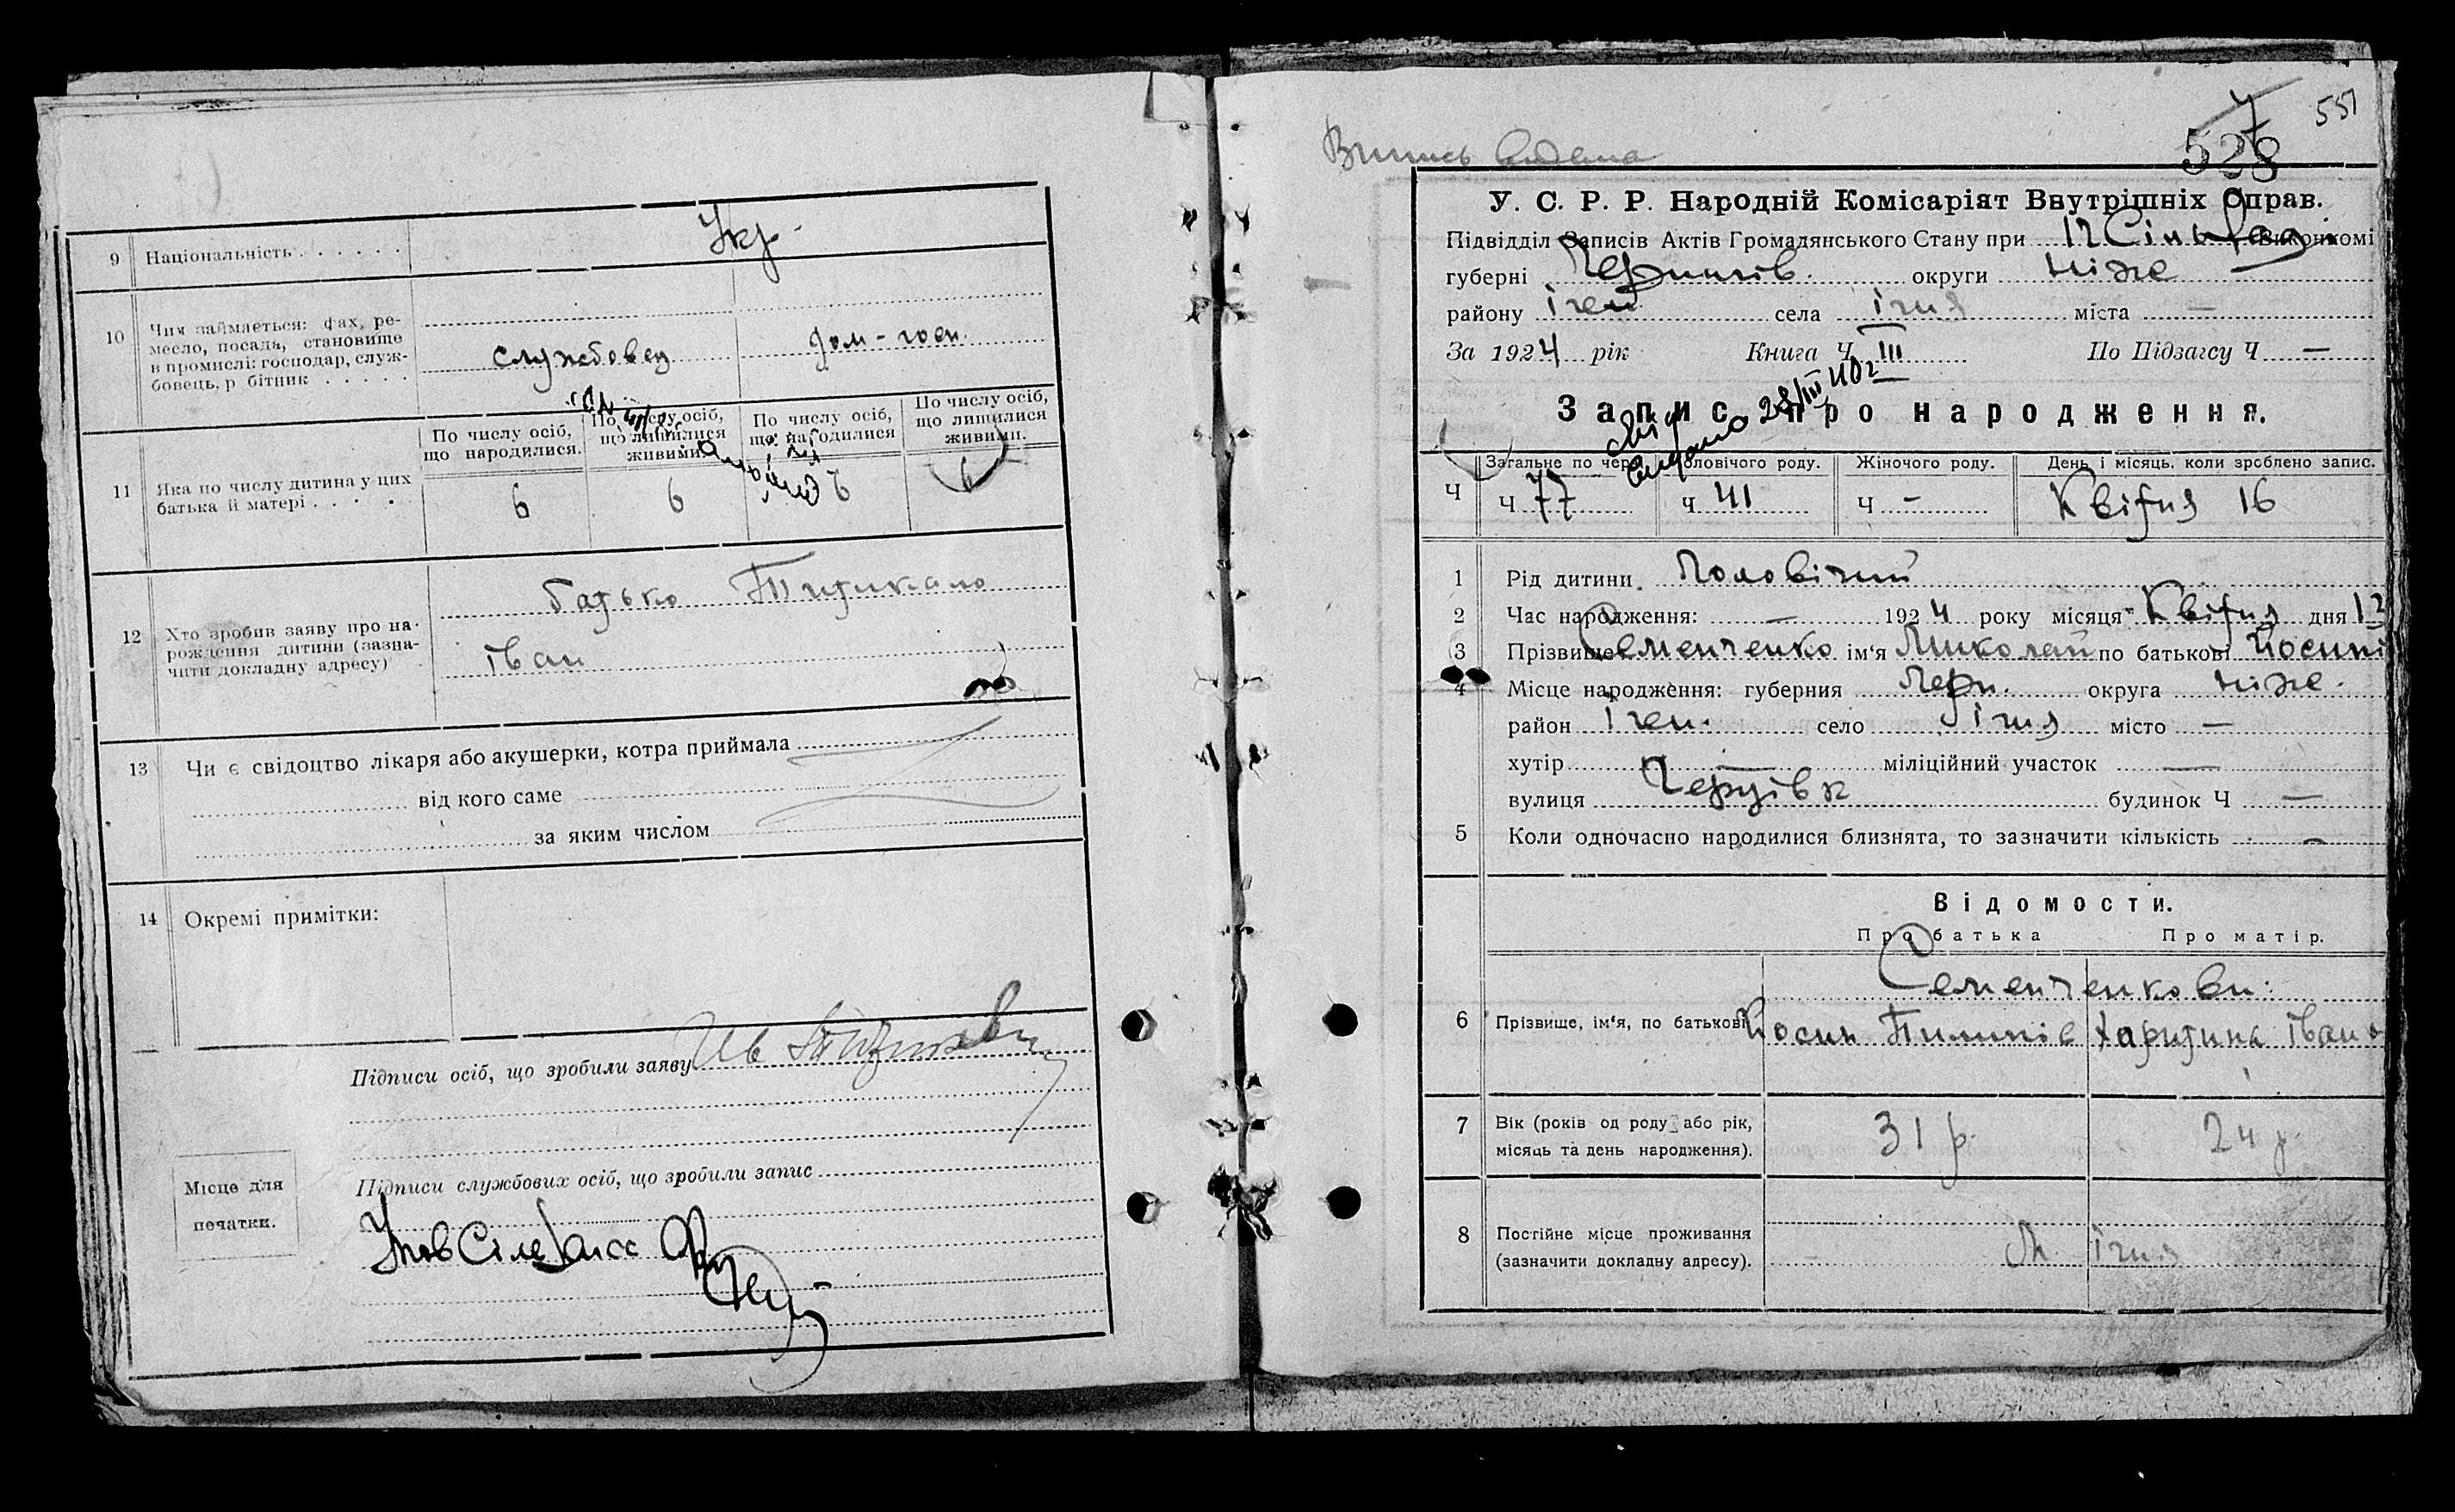 9 Національність . . . . . . Укр.
10 Чим займається: фах, ре-
месло, посада, становище
в промислі: господар, служ-
бовець, р бітник . . . . .
службовец дом-госп.
По числу осіб, що народилися.
По числу осіб, що лишилися живими.
По числу осіб, що народилися
По числу осіб, що лишилися живими.
11 Яка по числу дитина у цих
батька й матері . . . .
6 6 6 6
12 Хто зробив заяву про на-
рождення дитини (зазна-
чити докладну адресу)
батько Титикало
Іван
13 Чи є свідоцтво лікаря або акушерки, котра приймала
від кого саме
за яким числом
14 Окремі примітки:
Підписи осіб, що зробили заяву
Підписи службових осіб, що зробили запис
Місце для
печатки.
551
7
528
Випись видана
У. С. Р. Р. Народній Комісаріят Внутрішніх Справ.
Підвідділ Записів Актів Громадянського Стану при 12 Сіль Рад. Виконкомі
губерні Чернигів. округи Ніже
району Ічен села Ічня міста —
За 1924 рік Книга Ч III По Підзагсу Ч —
Запис про народження.
видано 28/III
Загальне по черзі Чоловічого роду. Жіночого роду. День і місяць, коли зроблено запис.
Ч Ч 77 Ч 41 Ч — Квітня 16
1 Рід дитини Чоловічий
2 Час народження: — 1924 року місяця Квітня дня 12
3 Прізвище Семенченко ім'я Миколай по батькові Йосипі
4 Місце народження: губерния Черн. округа Ніже.
район Ічен. село Ічня місто —
хутір — міліційний участок —
вулиця будинок Ч —
5 Коли одночасно народилися близнята, то зазначити кількість —
Відомости.
Про батька Про матір.
Семенченкови:
6 Прізвище, ім'я, по батькові Йосип Пилипів Харитина Іван
7 Вік (років од роду або рік,
місяць та день народження).
31 р. 24 р.
8 Постійне місце проживання
(зазначити докладну адресу).
м. Ічня